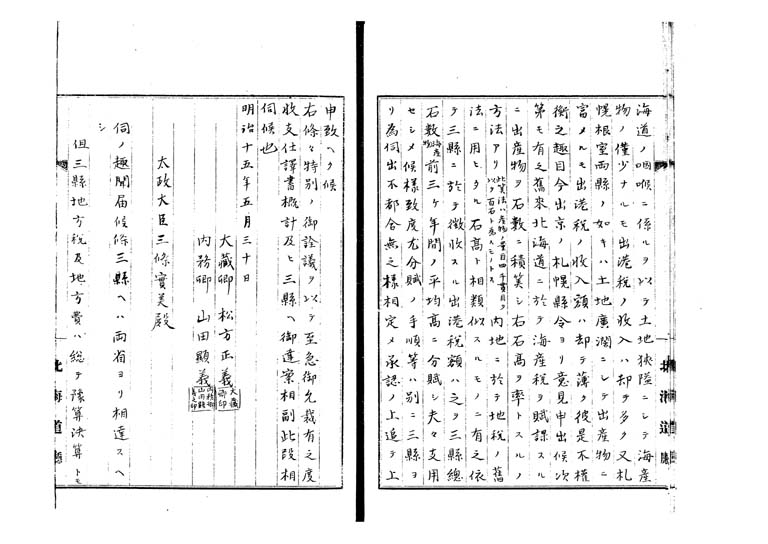 海道ノ咽喉ニ係ルヲ以テ土地狹隘ニシテ海産
物ノ僅少ナルモ出港税ノ收入ハ却テ多ク又札
幌根室兩縣ノ如キハ土地廣濶ニシテ出産物ニ
富メルモ出港税ノ收入額ハ却テ薄ク彼是不權
衡之趣目今出京ノ札幌縣令ヨリ意見申出候次
第モ有之舊來北海道ニ於テ海産税ヲ賦課スル
ニ出産物ヲ石數ニ積算シ右石高ヲ率トスルノ
方法アリ此算法ハ産物ノ量目四十貫目ヲ以テ百石ト爲スモノトス内地ニ於テ地税ノ舊
法ニ用ヒタル石高ト相類似スルモノニ有之依
テ三縣ニ於テ徴收スル出港税額ハ之ヲ三縣總
石數海産物前三ケ年間ノ平均高ニ分賦シ夫々支用
セシメ候様致度尤分賦ノ手順等ハ別ニ三縣ヨ
リ為伺出不都合無之様相定メ承認ノ上追テ上
申致ヘク候
右條々特別ノ御詮議ヲ以テ至急御允裁有之度
收支仕譯書概計及ヒ三縣ヘ御達案相副此段相
伺候也
明治十五年五月三十日
大藏卿 松方正義
内務卿 山田顯義
太政大臣三條實美殿
伺ノ趣聞届候條三縣ヘハ両省ヨリ相達スヘ
シ
但三縣地方税及地方費ハ總テ豫算決算トモ
北海道廳